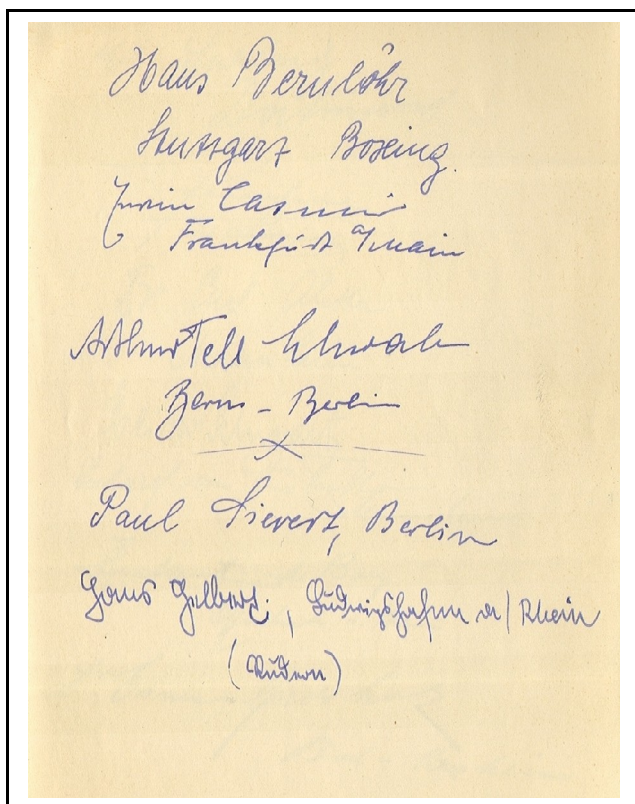 Hans Bernlöhr
Stuttgart Boxing.
Erwin Casmir
Frankfurt a/Main
Arthur Tell Schwab
Bern - Berlin
Paul Sievert, Berlin
Hans Gelbert, Ludwigshafen a/Rhein
(Rudern)